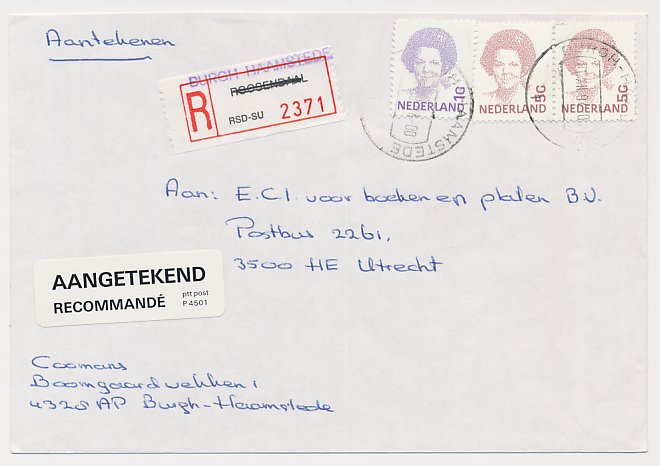 Aantekenen
BURGH-HAAMSTEDE
ROOSENDAAL
R
RSD-SU 2371
NEDERLAND 1G
NEDERLAND 5G
NEDERLAND 5G
HAAMSTEDE
BURGH-H
Aan: E.C.I. voor boeken en platen B.V.
Postbus 2261,
3500 HE Utrecht
AANGETEKEND
RECOMMANDÉ
ptt post
P 4501
Coomans
Boomgaardwekken 1
4328 AP Burgh-Haamstede